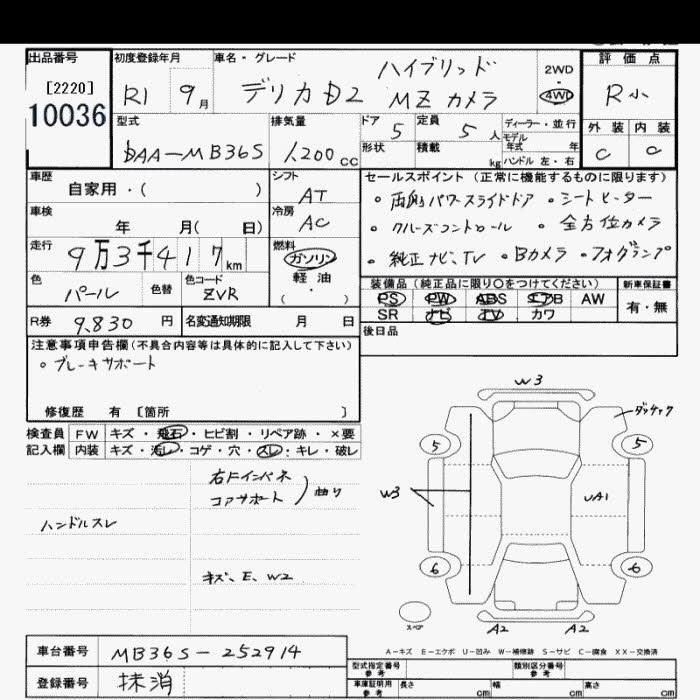 出品番号 初度登録年月 車名・グレード 評価点
[2220] 10036
R1 9月 デリカD2 ハイブリッド MZ カメラ 2WD・4WD R小
型式 排気量 ドア 5 定員 5人 ディーラー・並行 外装 内装
DAA-MB36S 1,200cc 形状 積載 kg モデル年式 年 ハンドル 左・右 C C
車歴 自家用・( ) シフト AT セールスポイント (正常に機能するものに限ります)
車検 年 月( 日) 冷房 AC
・両側パワースライドドア ・シートヒーター
・クルーズコントロール ・全方位カメラ
・純正ナビ、TV ・Bカメラ ・フォグランプ
走行 9万3千417km 燃料 ガソリン 軽油 ( ・ )
色 パール 色替 色コード ZVR
装備品 (純正品に限り○をつけてください) 新車保証書
PS PW ABS エアB AW 有・無
SR ナビ TV カワ
R券 9,830円 名変通知期限 月 日 後日品
注意事項申告欄 (不具合内容等は具体的に記入して下さい)
・ブレーキサポート
修復歴 有 [箇所 ]
検査員 FW キズ・飛石・ヒビ割・リペア跡・×要
記入欄 内装 キズ・汚レ・コゲ・穴・スレ・キレ・破レ
右Fインパネ
コアサポート 曲り
ハンドルスレ
キズ、E、W2
W3
ダッチャク
5 5
W3 UA1
6 6
スペア
A2 A2
A-キズ E-エクボ U-凹み W-補修跡 S-サビ C-腐食 XX-交換済
車台番号 MB36S-252914
登録番号 抹消
型式指定番号 参考 類別区分番号 参考
車庫証明用 参考 長さ cm 幅 cm 高さ cm